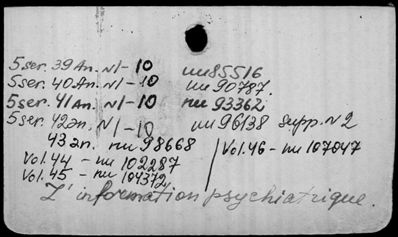 5 ser. 39 An. N1-10 nu 85516
5 ser. 40 An. N1-10 nu 90787.
5 ser. 41 An. N1-10 nu 93362
5 ser. 42 an. N1-10 nu 96138 supp. N2
43 an. nu 98668
Vol. 44 - nu 102287 / Vol. 46 - nu 107047
Vol. 45 - nu 104372
L'information psychiatrique.